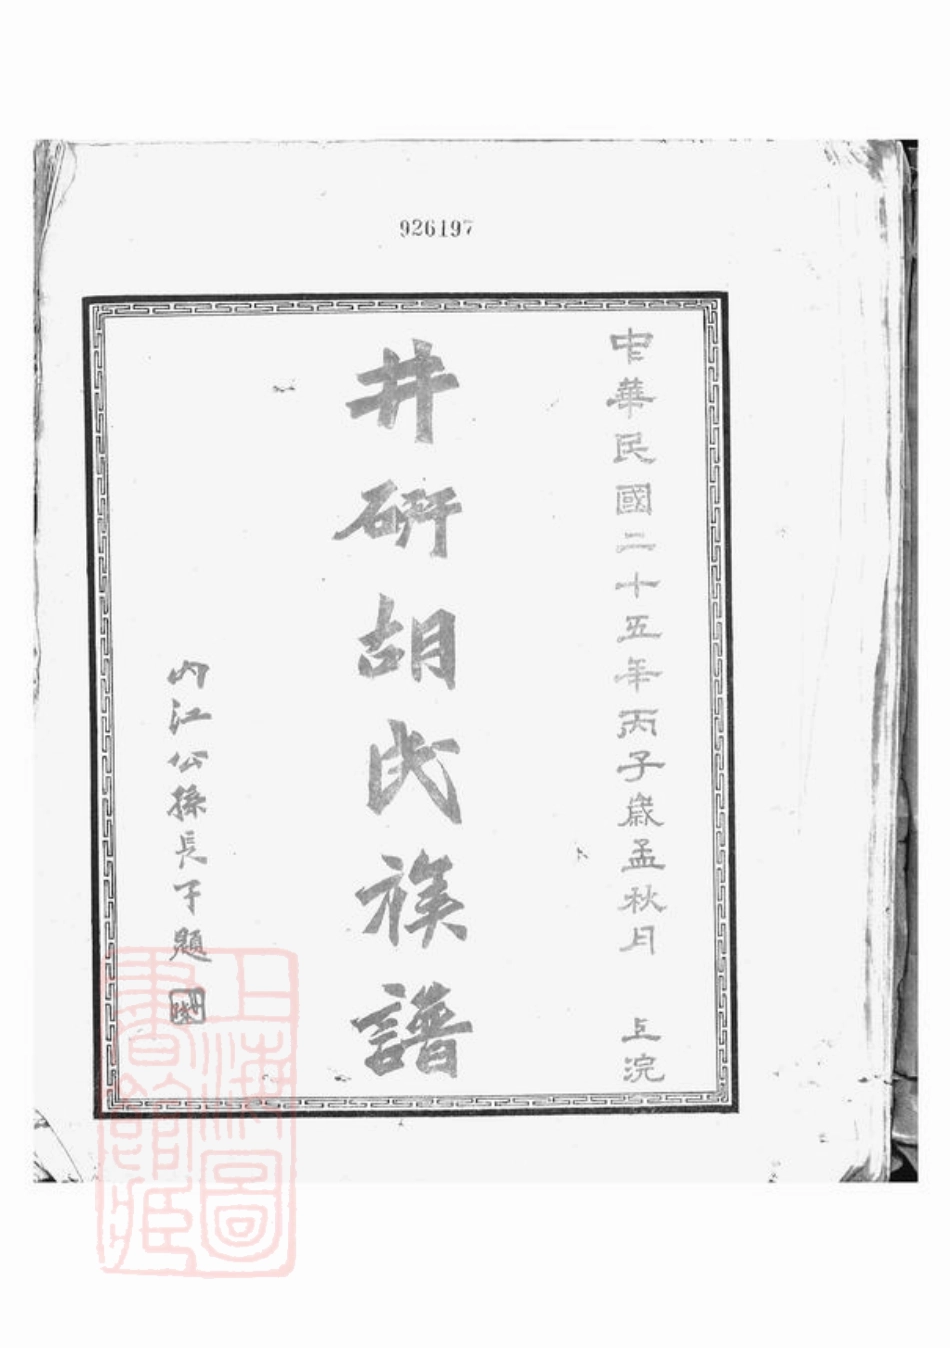 926197
中華民國二十五年丙子歲孟秋月 上浣
井研胡氏族譜
內江公孫長子題
上海圖書館藏